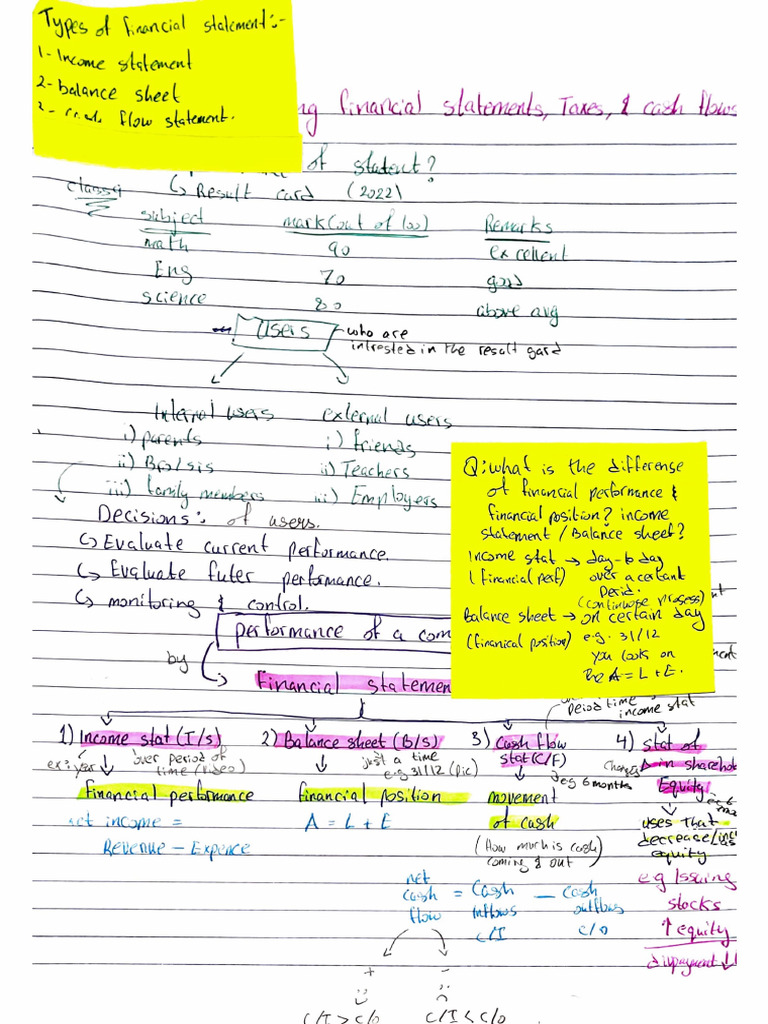 Types of financial statement:-
1- Income statement
2- balance sheet
flow statement.
financial statements, Taxes, & cash flows
of statent?
class 9
↳ Result card (2022)
subject mark (out of 100) Remarks
math 90 excellent
Eng 70 good
science 80 above avg
Users
who are
intrested in the result gard
Internal users external users
i) parents i) friends
ii) Bro/sis ii) Teachers
iii) family members iii) Employers
Decisions: of users.
↳ Evaluate current performance.
↳ Evaluate futer performance.
↳ monitoring & control.
Q: what is the differense
of financial performance &
financial position? income
statement / Balance sheet?
Income stat → day-to day
(financial perf) over a certant
perid.
(continuose prosess)
Balance sheet → on certain day
(finanical position) e.g. 31/12
you looks on
the A = L + E.
performance of a com
by
Financial statemen
peiod time
income stat
1) Income stat (I/s) 2) Balance sheet (B/s) 3) Cash flow 4) stat of
stat (C/F)
ex: year over period of
time (video)
just a time
e.g 31/12 (pic)
eg 6 months
changes in shareho
Equity
financial performance financial position movement
of cash
uses that
decrease/
equity
net income = A = L + E
Revenue − Expence
(How much is cash
coming & out)
net
cash = Cash − Cash
flow inflows outflows
C/I C/O
eg Issuing
stocks
↑ equity
↓
+ −
C/I > C/O C/I < C/O